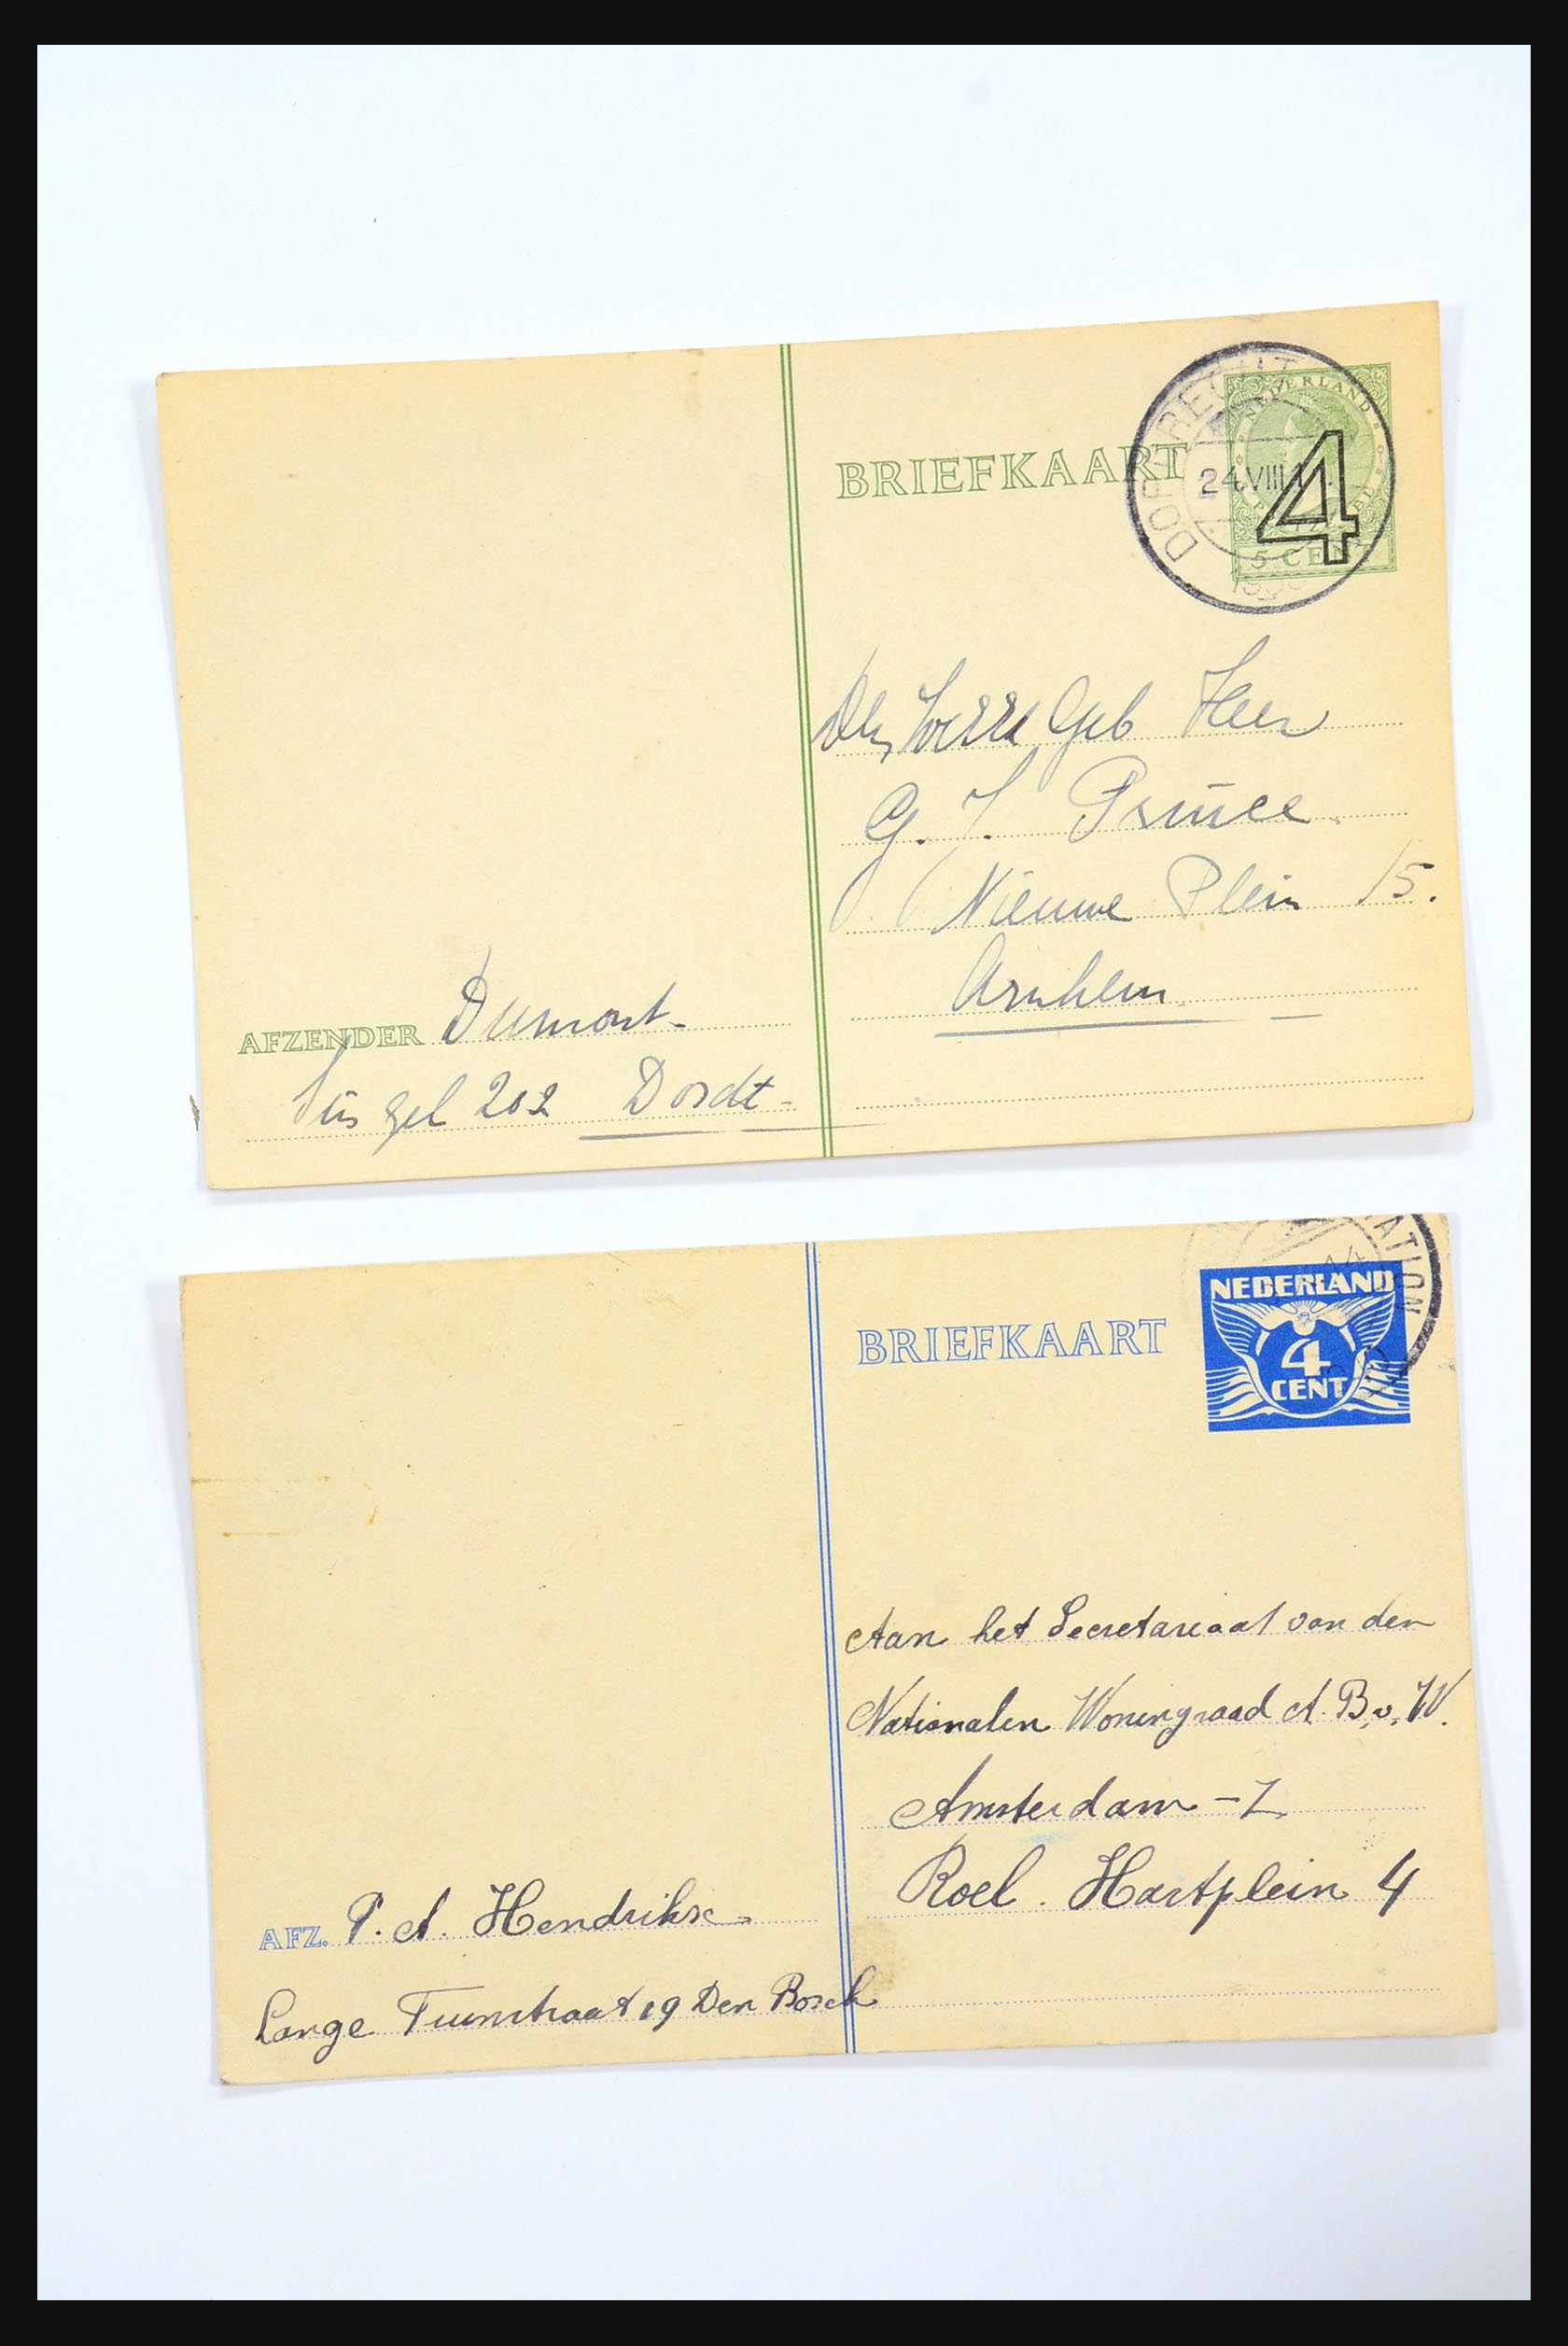 BRIEFKAART
DORDRECHT
24.VIII
NEDERLAND
5 CENT
4
Geb Heer
G. J. Prince
Nieuwe Plein 15.
Arnhem
AFZENDER Dumont
Singel 202 Dordt
BRIEFKAART
NEDERLAND
4
CENT
STATION
14
Aan het Secretariaat van den
Nationalen Woningraad A.B.v.W.
Amsterdam-Z
Roel. Hartplein 4
AFZ. P. A. Hendrikse
Lange Tuinstraat 19 Den Bosch